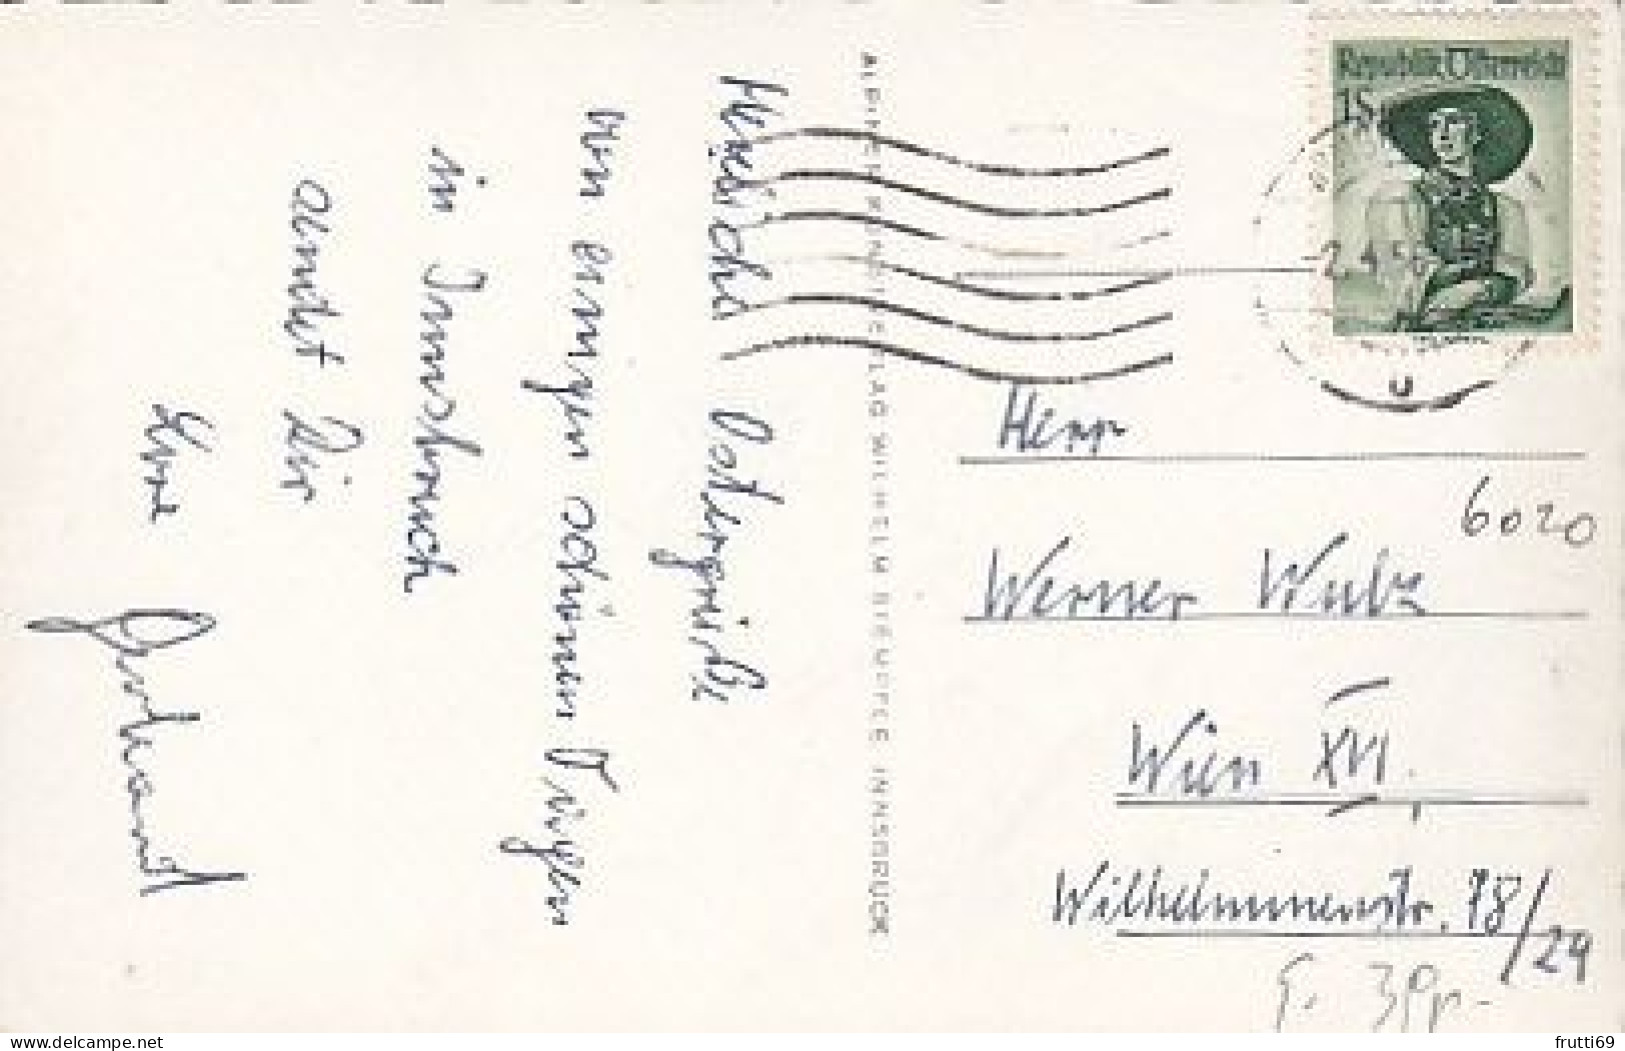 Herzliche Ostergrüße
von einigen schönen Tagen
in Innsbruck
sendet Dir
Gerhard
ALPINER KUNSTVERLAG WILHELM STEMPFLE INNSBRUCK
Republik Österreich
15g
2.4.56
Herr
6020
Werner Wulz
Wien XVI.
Wilhelminenstr. 98/29
www.delcampe.net
frutti69